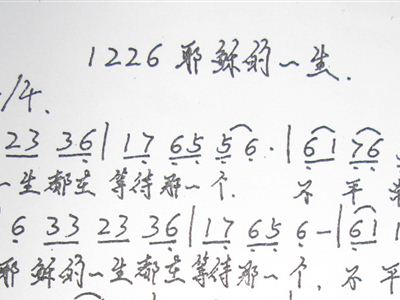 1226 耶稣的一生.
/4.
23 36 | 17 65 5 6. | 61 76
一生都在等待那一个. 不平
6 33 23 36 | 17 65 6 - | 61 1
耶稣的一生都在等待那一个, 不平